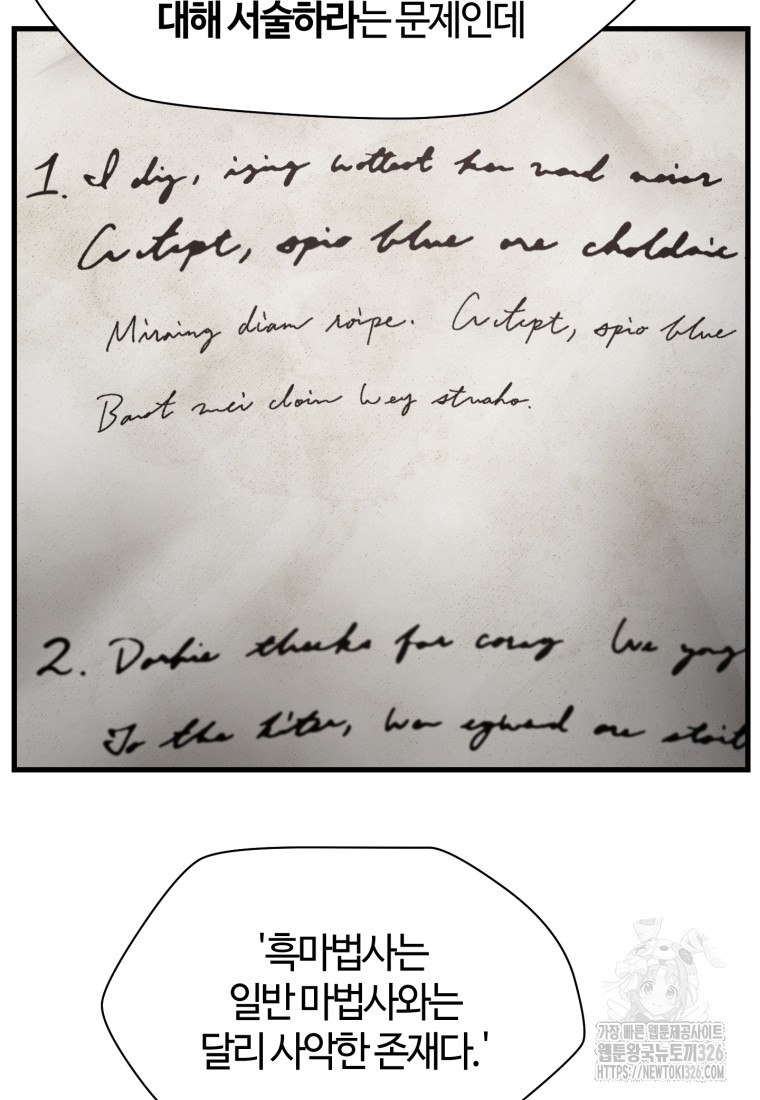 대해 서술하라는 문제인데
1. I dig, izing wottest her vend noisr
Cretept, spio blue are choldaic
Miraing diam roipe. Cretept, spio blue
Barot mei cloim wey struaho.
2. Dorbie theeks for coreg We yong
To the hitse, wer egiwed are stoit
'흑마법사는
일반 마법사와는
달리 사악한 존재다.'
가장 빠른 웹툰제공사이트
웹툰왕국뉴토끼326
HTTPS://NEWTOKI326.COM